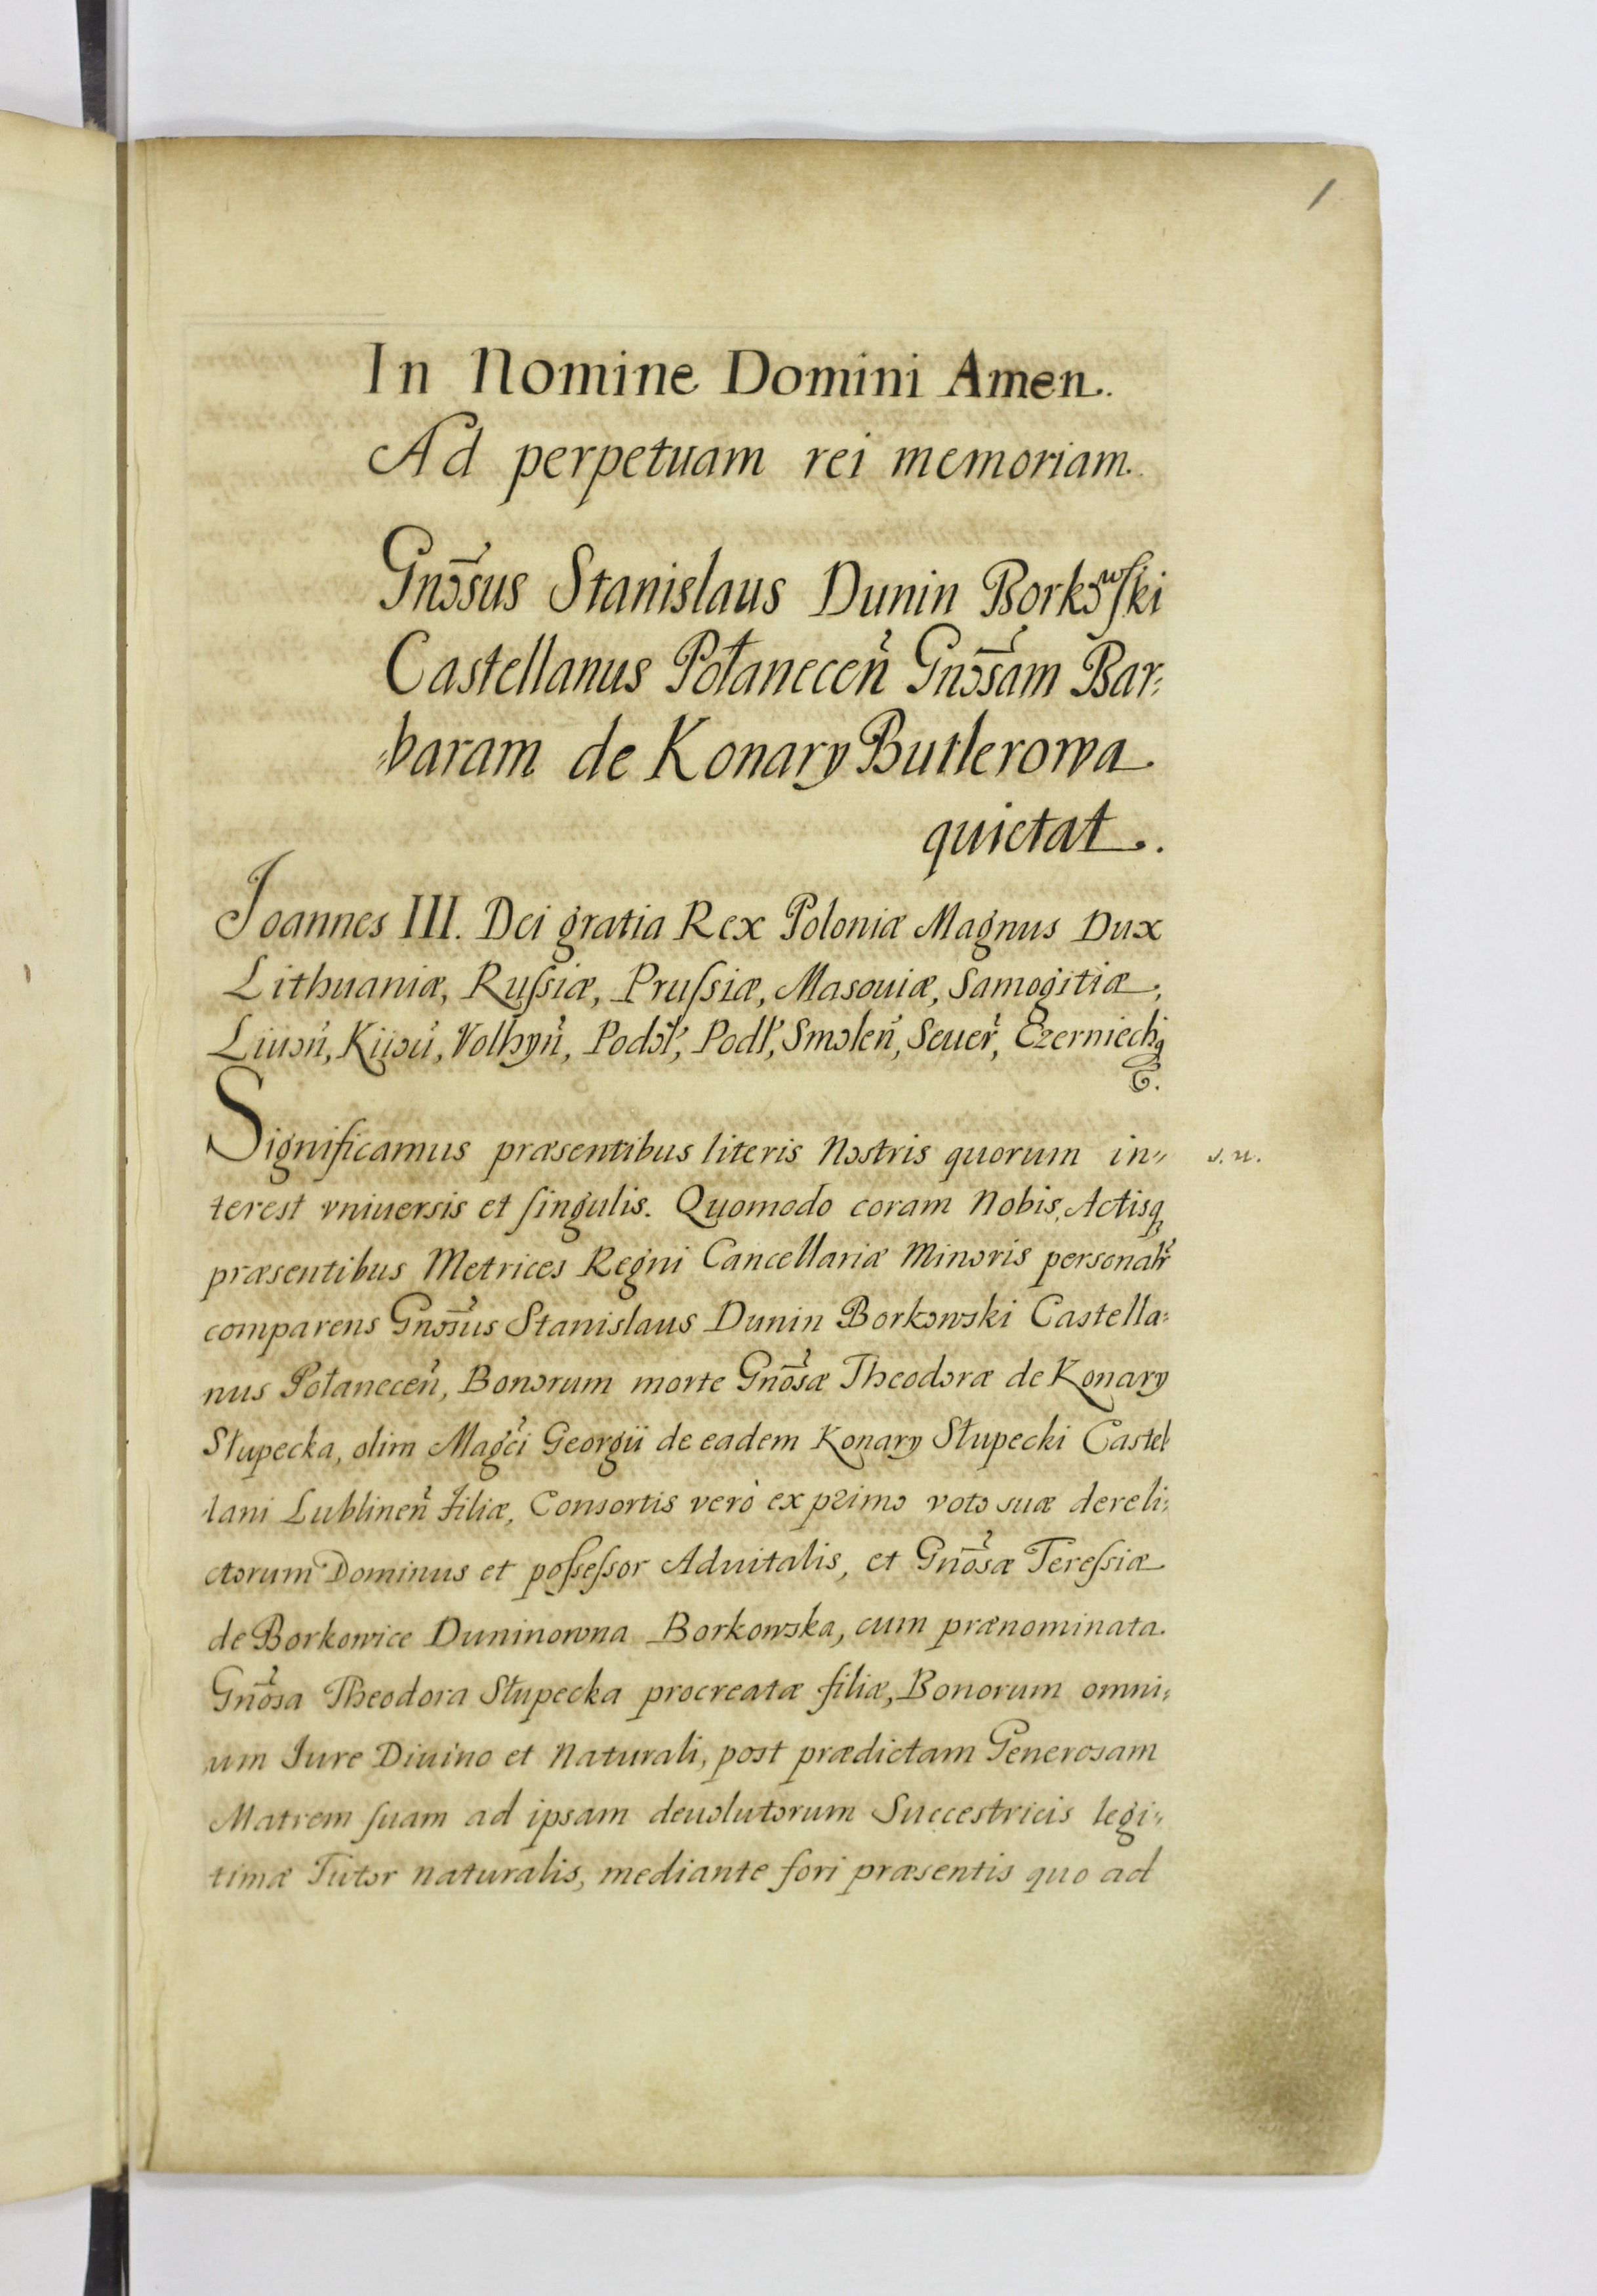 1
In Nomine Domini Amen.
Ad perpetuam rei memoriam.
Gnosus Stanislaus Dunin Borkowski
Castellanus Połanecen Gnosam Bar=
=baram de Konary Butlerowa
quietat.
Joannes III. Dei gratia Rex Poloniæ Magnus Dux
Lithuaniæ, Rußiæ, Prußiæ, Masouiæ, Samogitiæ,
Liuon, Kiiou, Volhyn, Podol, Podl, Smolen, Seuer, Czerniechq
&.
Significamus præsentibus literis Nostris quorum in= s. n.
terest vniuersis et singulis. Quomodo coram Nobis, Actisq
præsentibus Metrices Regni Cancellariæ Minoris personalr
comparens Gnosus Stanislaus Dunin Borkowski Castella=
nus Połanecen, Bonorum morte Gnosæ Theodoræ de Konary
Słupecka, olim Magci Georgii de eadem Konary Słupecki Castel
lani Lublinen filiæ, Consortis verò ex primo voto suæ dereli=
ctorum Dominus et poßeßor Aduitalis, et Gnosæ Tereßiæ
de Borkowice Duninowna Borkowska, cum prænominata
Gnosa Theodora Słupecka procreatæ filiæ, Bonorum omni=
um Jure Diuino et Naturali, post prædictam Generosam
Matrem suam ad ipsam deuolutorum Succestricis legi=
timæ Tutor naturalis, mediante fori præsentis quo ad